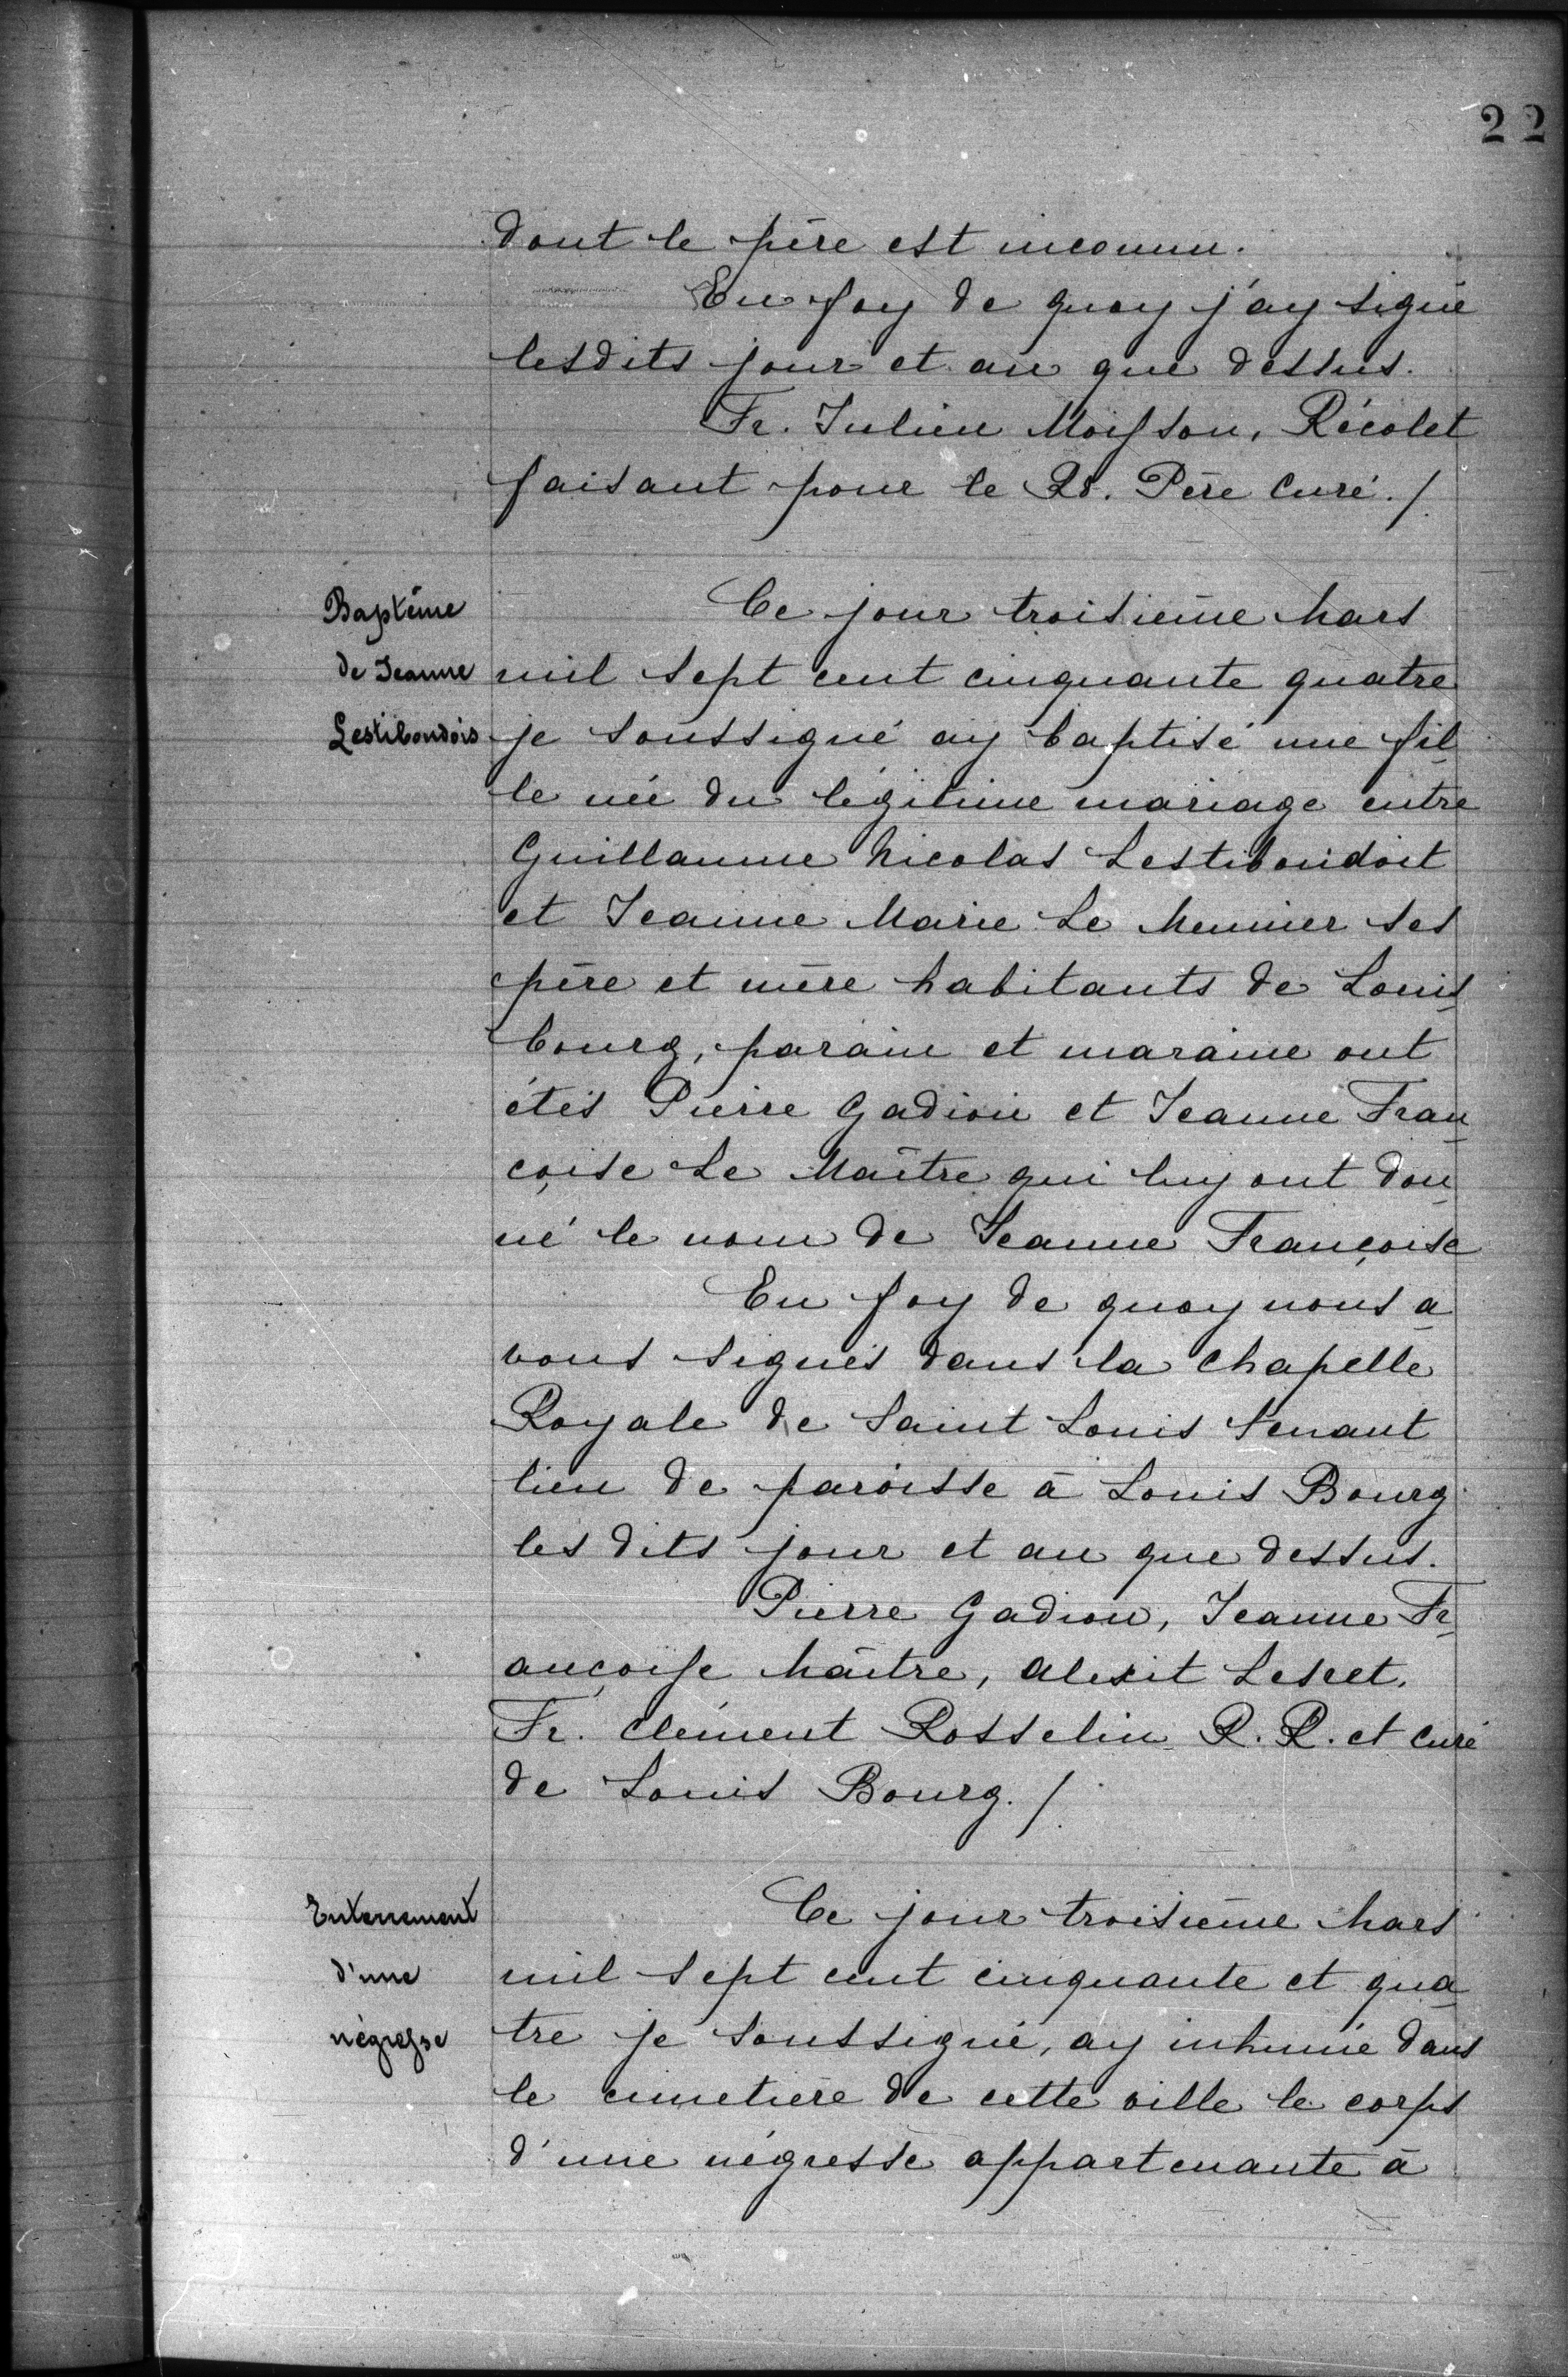 22
dont le père est inconnu.
En foy de quoy j'ay signé
lesdits jour et an que dessus.
Fr. Julien Moisson, Récolet
faisant pour le Rd. Père Curé./.
Baptême
de Jeanne
Lestiboudois
Ce jour troisième Mars
mil sept cent cinquante quatre
je soussigné ay baptisé une fil-
le née du légitime mariage entre
Guillaume Nicolas Lestiboudoit
et Jeanne Marie Le Meunier ses
père et mère habitants de Louis-
bourg, parain et maraine ont
étés Pierre Gadion et Jeanne Fran-
çoise Le Maître qui luy ont don-
né le nom de Jeanne Françoise
En foy de quoy nous a-
vons signés dans la Chapelle
Royale de Saint Louis tenant
lieu de paroisse à Louis Bourg
les dits jour et an que dessus.
Pierre Gadion, Jeanne Fr-
ançoise Maître, Alexit Lescet.
Fr. Clément Rosselin R. R. et Curé
de Louis Bourg./.
Enterrement
d'une
négresse
Ce jour troisième Mars
mil sept cent cinquante et qua-
tre je soussigné, ay inhumé dans
le cimetière de cette ville le corps
d'une négresse appartenante à